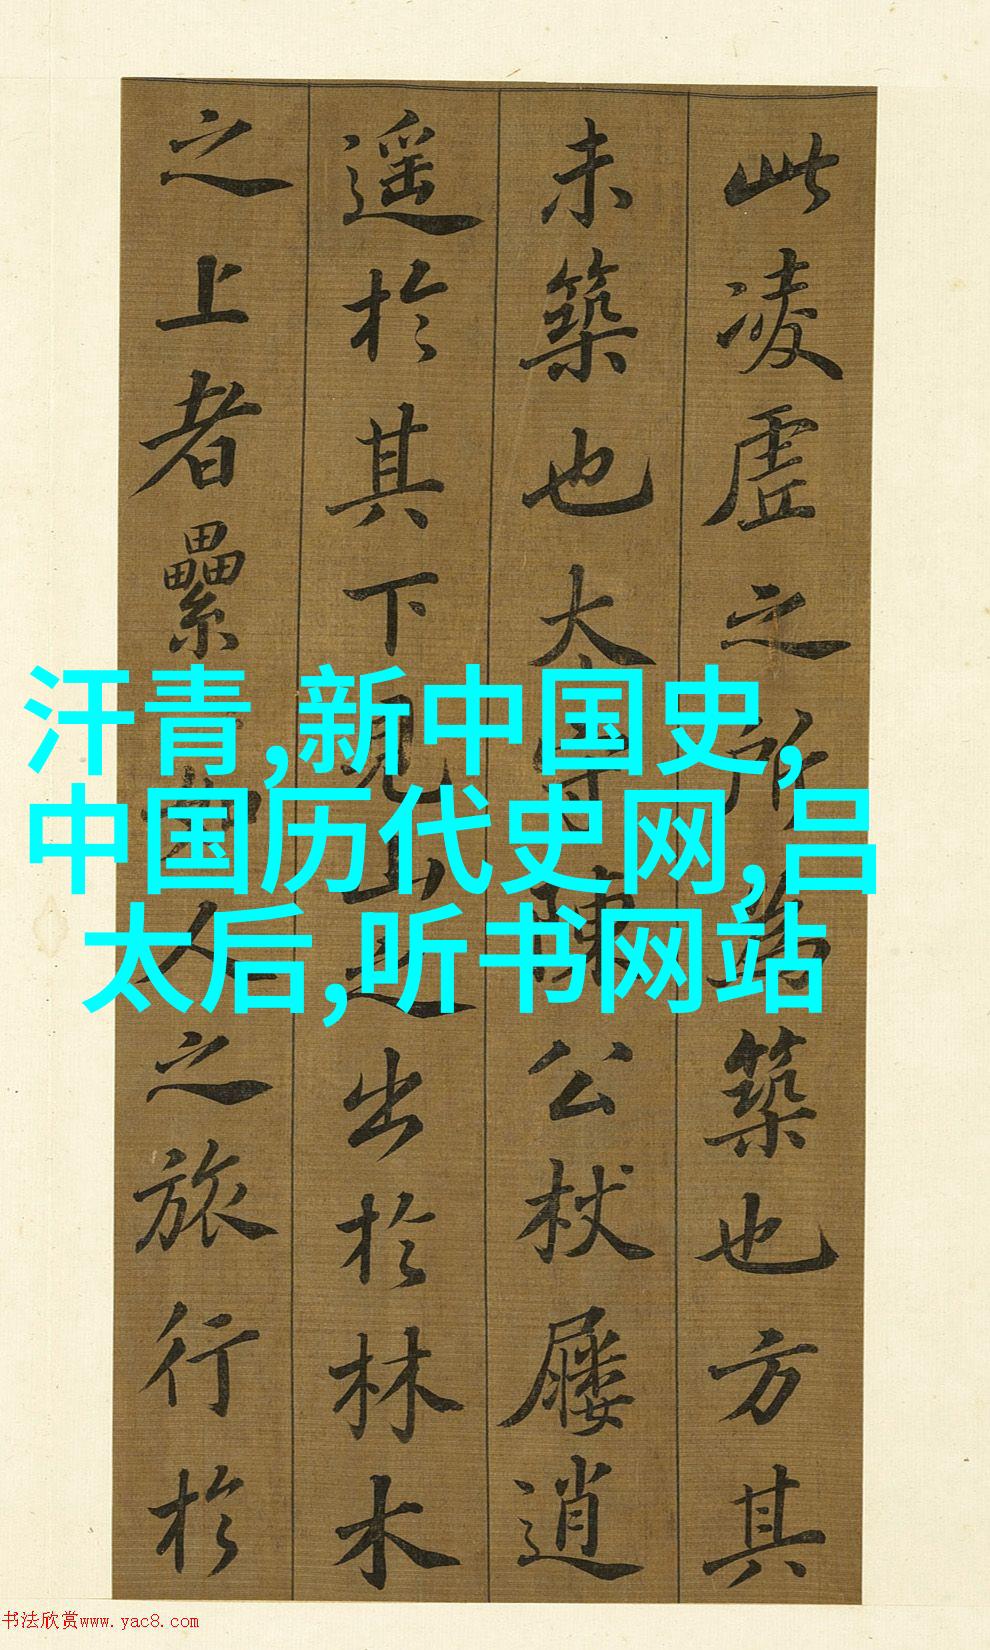 此凌虛之所為築也方其
未築也太守陳公杖屨逍
遥於其下見山之出於林木
之上者纍如人之旅行於
汗青,新中国史,
中国历代史网,吕
太后,听书网站
书法欣赏www.yac8.com